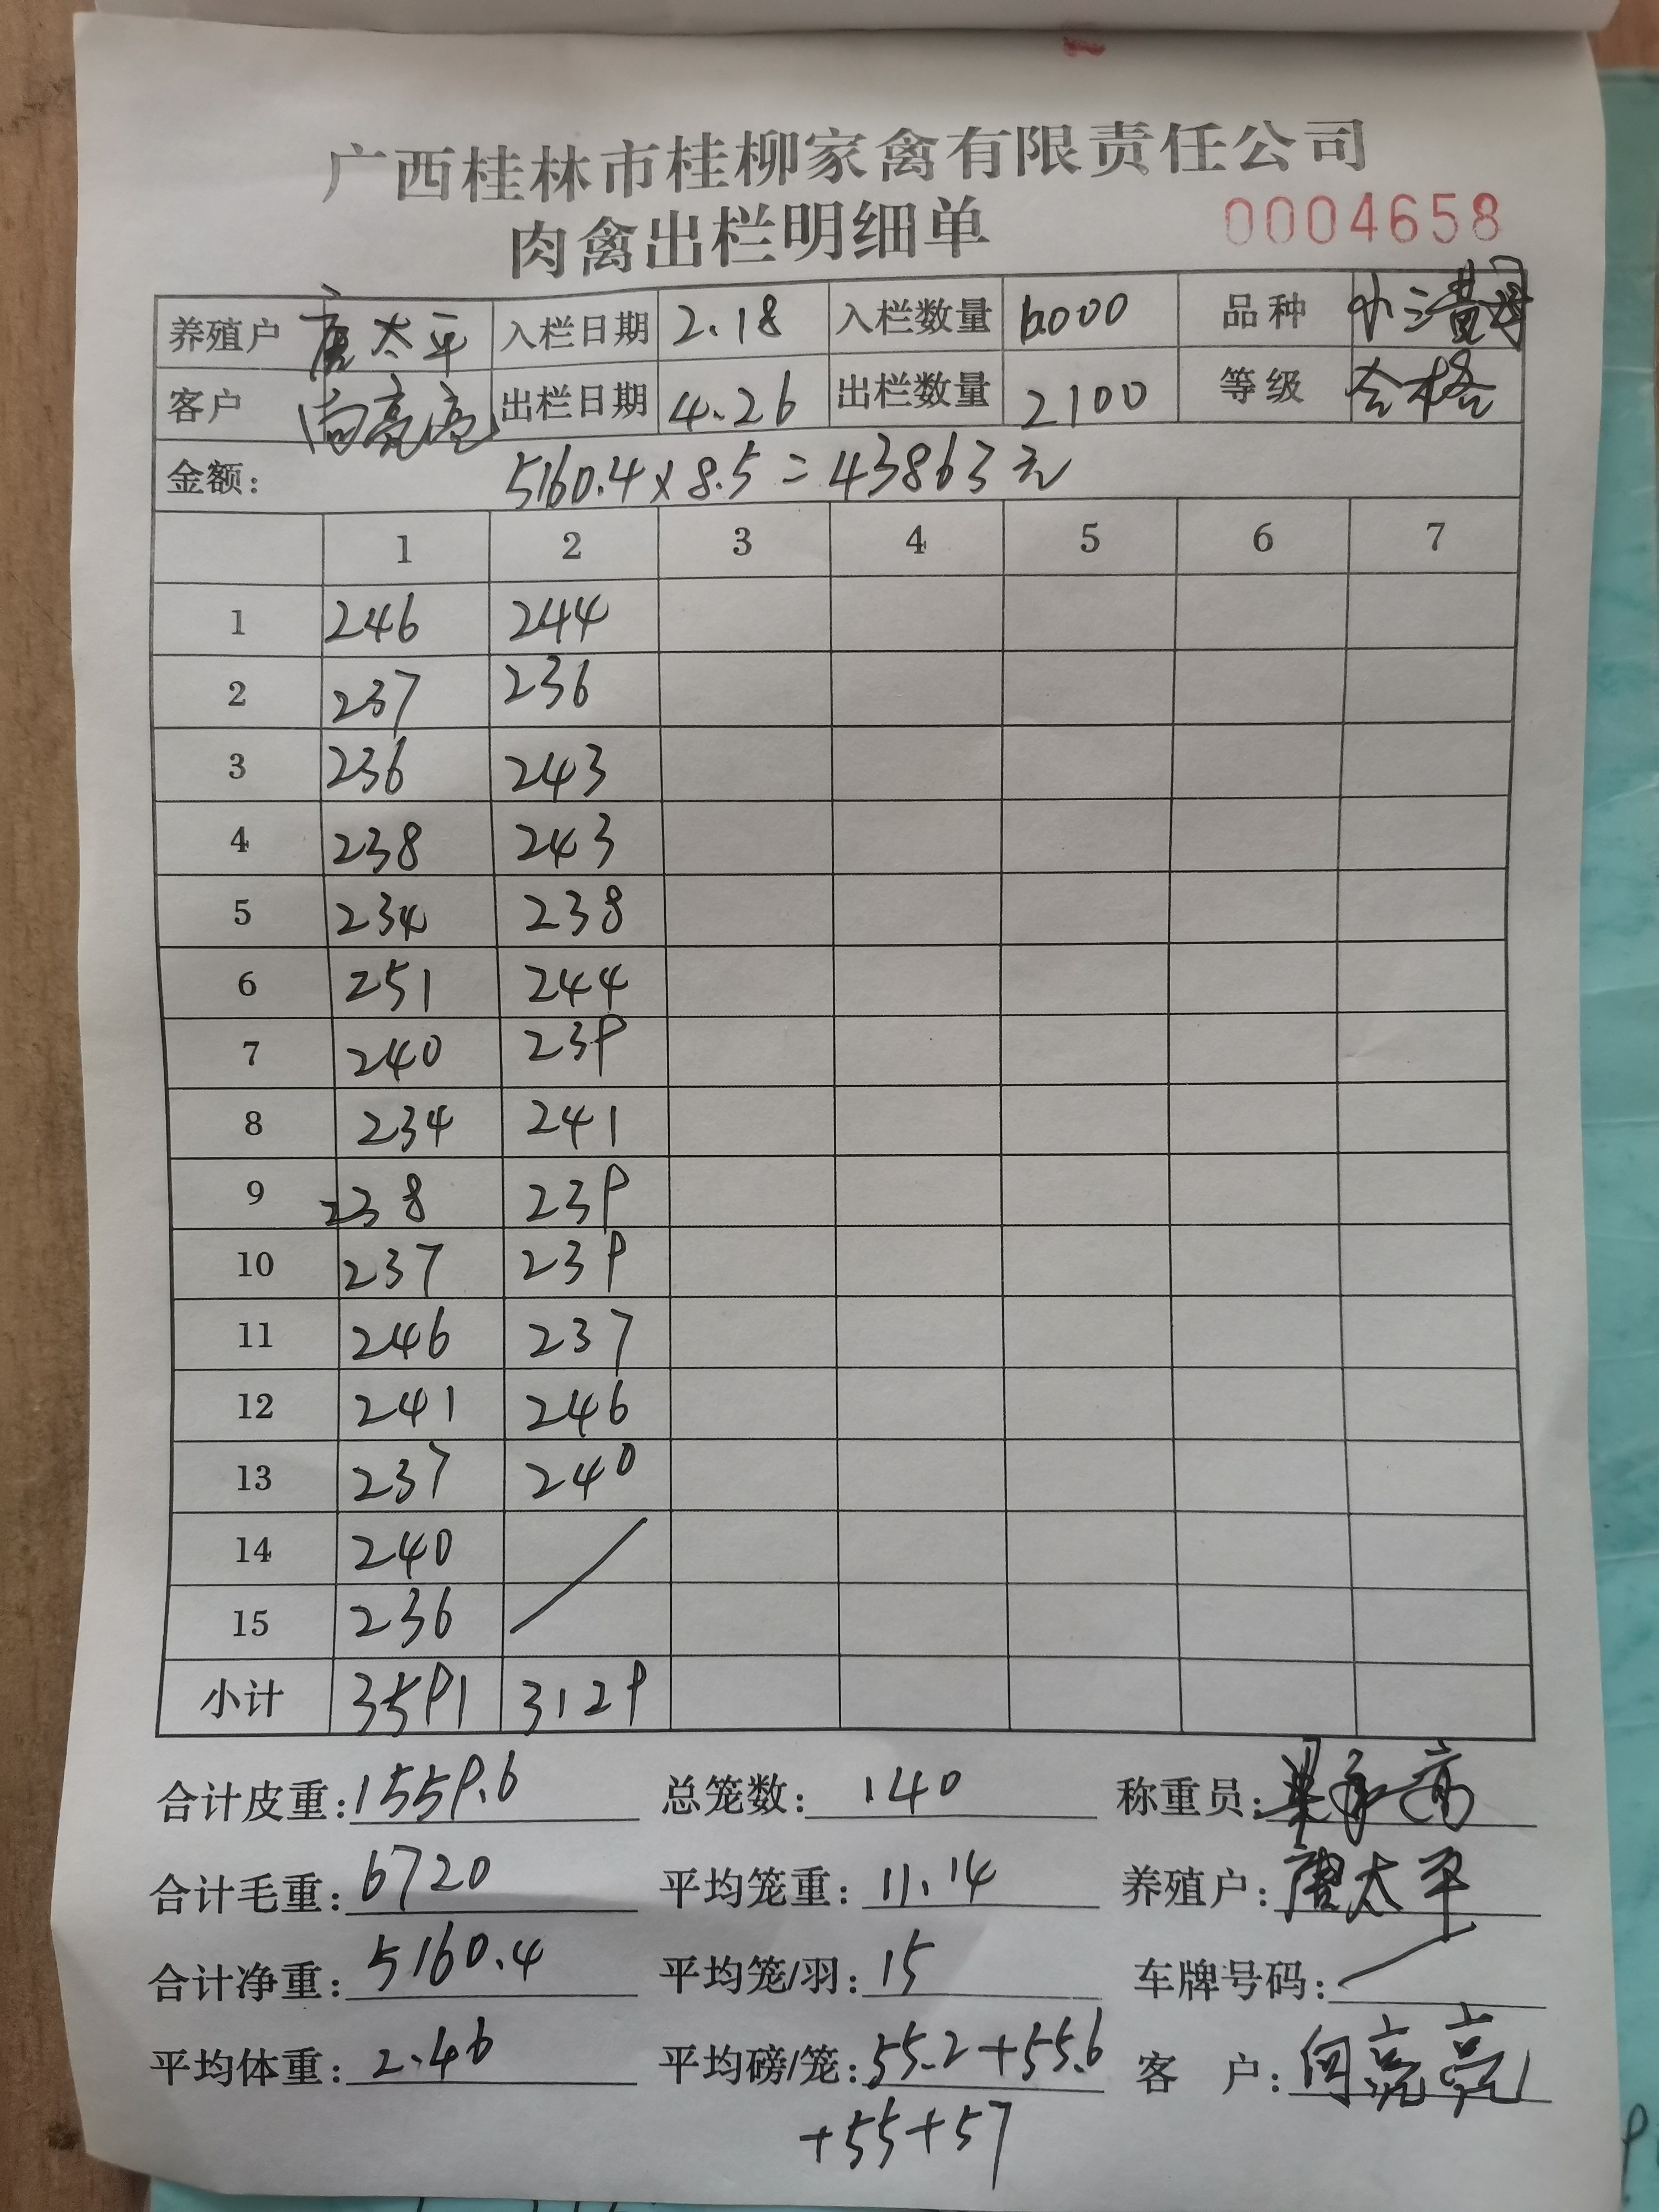 广西桂林市桂柳家禽有限责任公司
肉禽出栏明细单 0004658
养殖户 唐太平 入栏日期 2.18 入栏数量 6000 品种 小三黄母
客户 向亮亮 出栏日期 4.26 出栏数量 2100 等级 合格
金额： 5160.4×8.5=43863元
1 2 3 4 5 6 7
1 246 244
2 237 236
3 236 243
4 238 243
5 234 238
6 251 244
7 240 239
8 234 241
9 238 239
10 237 239
11 246 237
12 241 246
13 237 240
14 240
15 236
小计 3591 3129
合计皮重：1559.6 总笼数：140 称重员：
合计毛重：6720 平均笼重：11.14 养殖户：唐太平
合计净重：5160.4 平均笼/羽：15 车牌号码：
平均体重：2.46 平均磅/笼：55.2+55.6 客 户：向亮亮
+55+57